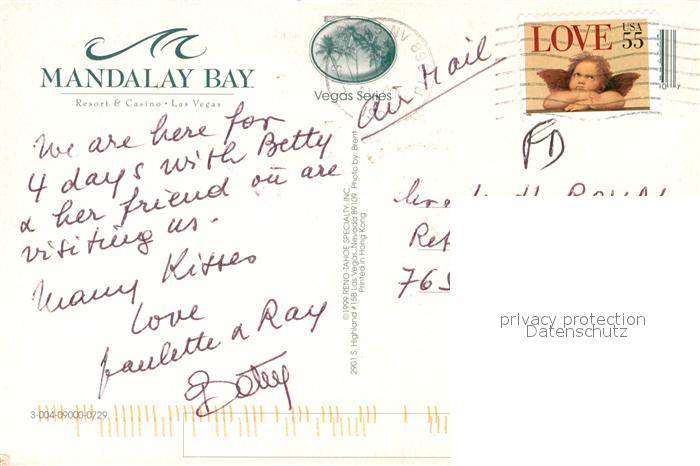 MANDALAY BAY
Resort & Casino • Las Vegas
Vegas Series
air Mail
LOVE USA 55
We are here for
4 days with Betty
& her friend
are
visiting us -
Many Kisses
love
Paulette & Ray
Betty
©1999 RENO-TAHOE SPECIALTY, INC.
2901 S. Highland #15B Las Vegas, Nevada 89109 Photo by: Brent
Printed in Hong Kong
765
privacy protection
Datenschutz
3-004-09000-0729